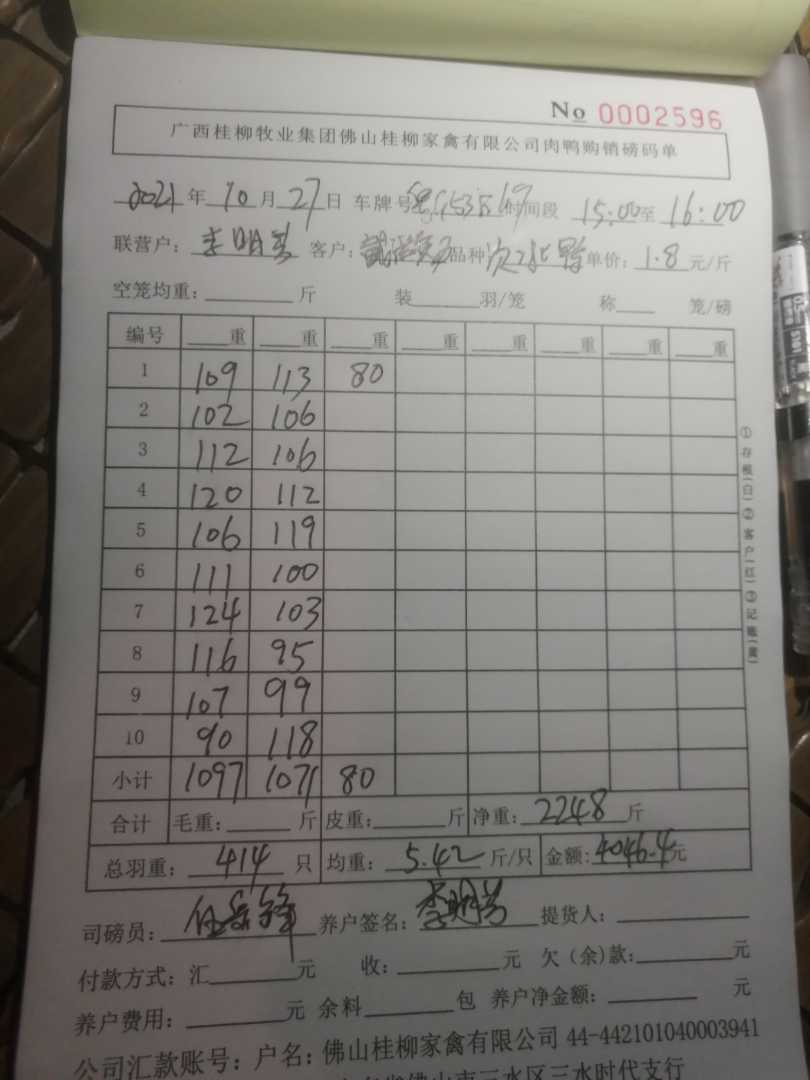 No 0002596
广西桂柳牧业集团佛山桂柳家禽有限公司肉鸭购销磅码单
2021年10月27日 车牌号 时间段 15:00至16:00
联营户:李明芳 客户: 品种 单价:1.8元/斤
空笼均重: 斤 装 羽/笼 称 笼/磅
编号 重 重 重 重 重 重 重 重
1 109 113 80
2 102 106
3 112 106
4 120 112
5 106 119
6 111 100
7 124 103
8 116 95
9 107 99
10 90 118
小计 1097 1071 80
合计 毛重: 斤 皮重: 斤 净重:2248斤
总羽重:414只 均重:5.42斤/只 金额:4046.4元
司磅员: 养户签名:李明芳 提货人:
付款方式:汇 元 收: 元 欠(余)款: 元
养户费用: 元 余料 包 养户净金额: 元
公司汇款账号:户名:佛山桂柳家禽有限公司 44-442101040003941
佛山市三水区三水时代支行
①存根(白)②客户(红)③记账(黄)